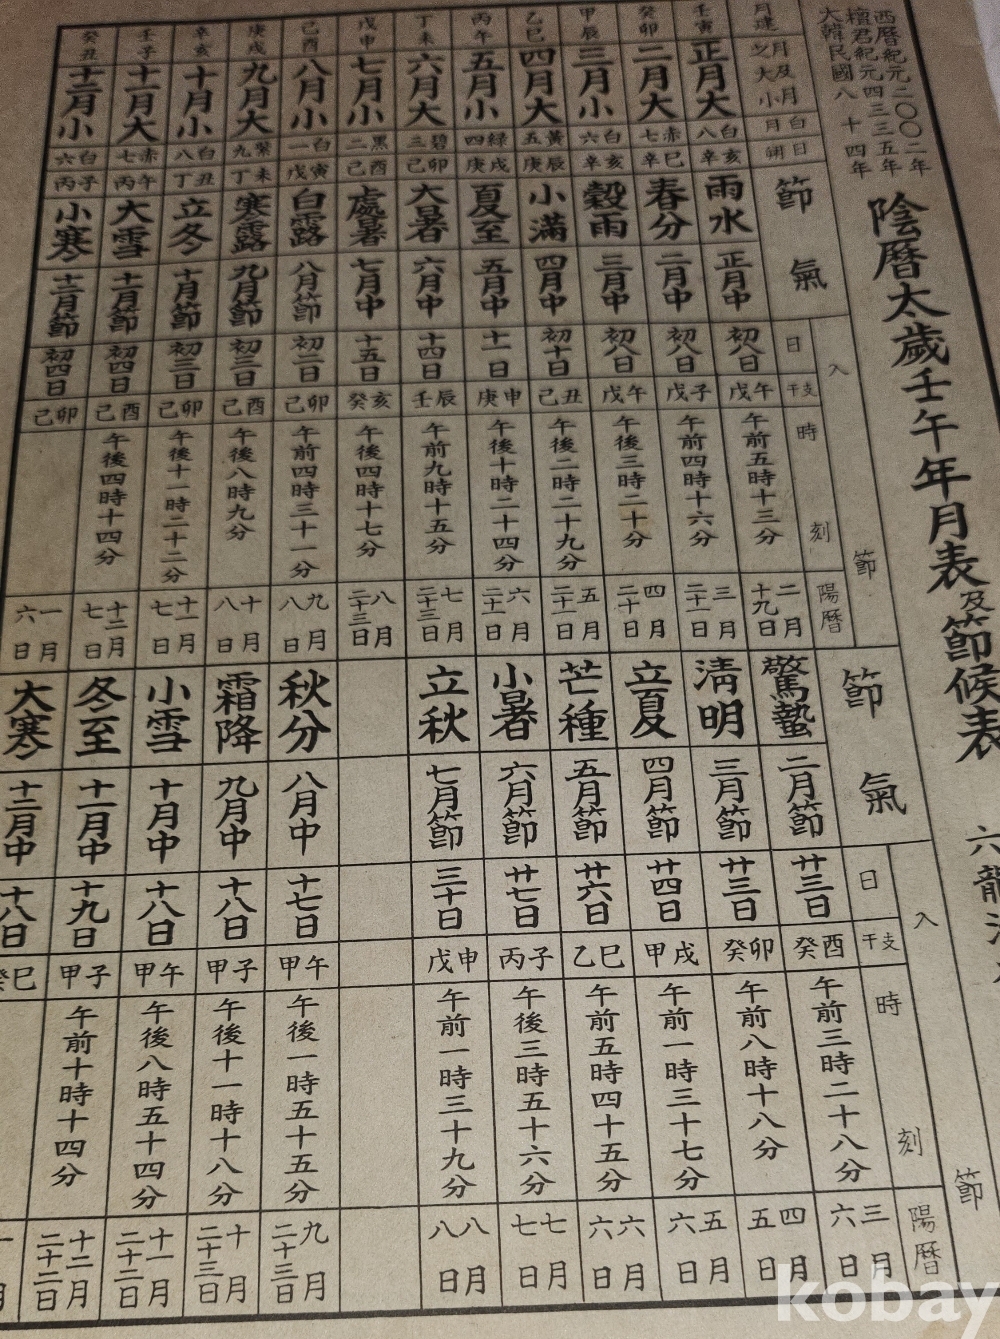 西曆紀元二〇〇二年
檀君紀元四三三五年
大韓民國八十四年
陰曆太歲壬午年月表及節候表 六龍
月建 月及月之大小 月白 日朔 節氣 入節 日 干支 時刻 陽曆 節氣 入節 日 干支 時刻 陽曆
壬寅 正月大 八白 辛亥 雨水 正月中 初八日 戊午 午前五時十三分 二月十九日 驚蟄 二月節 廿三日 癸酉 午前三時二十八分 三月六日
癸卯 二月大 七赤 辛巳 春分 二月中 初八日 戊子 午前四時十六分 三月二十一日 淸明 三月節 廿三日 癸卯 午前八時十八分 四月五日
甲辰 三月小 六白 辛亥 穀雨 三月中 初八日 戊午 午後三時二十分 四月二十日 立夏 四月節 廿四日 甲戌 午前一時三十七分 五月六日
乙巳 四月大 五黃 庚辰 小滿 四月中 初十日 己丑 午後二時二十九分 五月二十一日 芒種 五月節 廿六日 乙巳 午前五時四十五分 六月六日
丙午 五月小 四綠 庚戌 夏至 五月中 十一日 庚申 午後十時二十四分 六月二十一日 小暑 六月節 廿七日 丙子 午後三時五十六分 七月七日
丁未 六月大 三碧 己卯 大暑 六月中 十四日 壬辰 午前九時十五分 七月二十三日 立秋 七月節 三十日 戊申 午前一時三十九分 八月八日
戊申 七月小 二黑 己酉 處暑 七月中 十五日 癸亥 午後四時十七分 八月二十三日
己酉 八月小 一白 戊寅 白露 八月節 初二日 己卯 午前四時三十一分 九月八日 秋分 八月中 十七日 甲午 午後一時五十五分 九月二十三日
庚戌 九月大 九紫 丁未 寒露 九月節 初三日 己酉 午後八時九分 十月八日 霜降 九月中 十八日 甲子 午後十一時十八分 十月二十三日
辛亥 十月小 八白 丁丑 立冬 十月節 初三日 己卯 午後十一時二十二分 十一月七日 小雪 十月中 十八日 甲午 午後八時五十四分 十一月二十二日
壬子 十一月大 七赤 丙午 大雪 十一月節 初四日 己酉 午後四時十四分 十二月七日 冬至 十一月中 十九日 甲子 午前十時十四分 十二月二十二日
癸丑 十二月小 六白 丙子 小寒 十二月節 初四日 己卯 一月六日 大寒 十二月中 十八日 癸巳